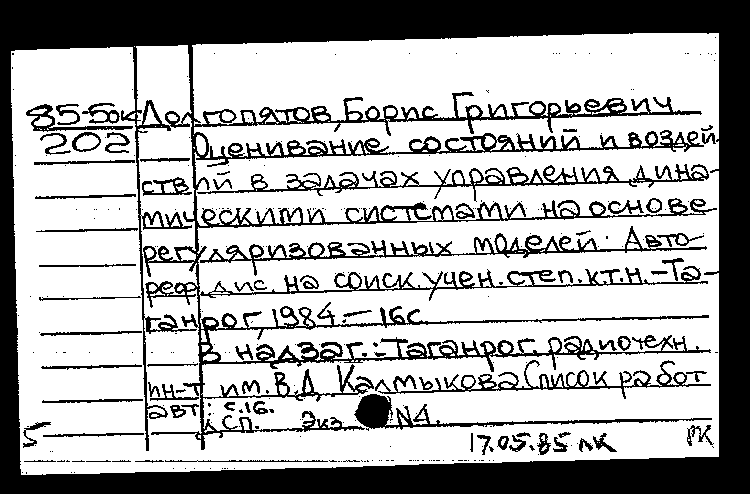 85-5ок Долгопятов, Борис Григорьевич
202 Оценивание состояний и воздей-
ствий в задачах управления дина-
мическими системами на основе
регуляризованных моделей. Авто-
реф. дис. на соиск. учен. степ. к.т.н. - Та-
ганрог, 1984. - 16с.
В надзаг.: Таганрог. радиочехн.
ин-т им. В.Д. Калмыкова. Список работ
авт.: с.16.
ДСП. Экз N4.
5 17.05.85 ЛК РК